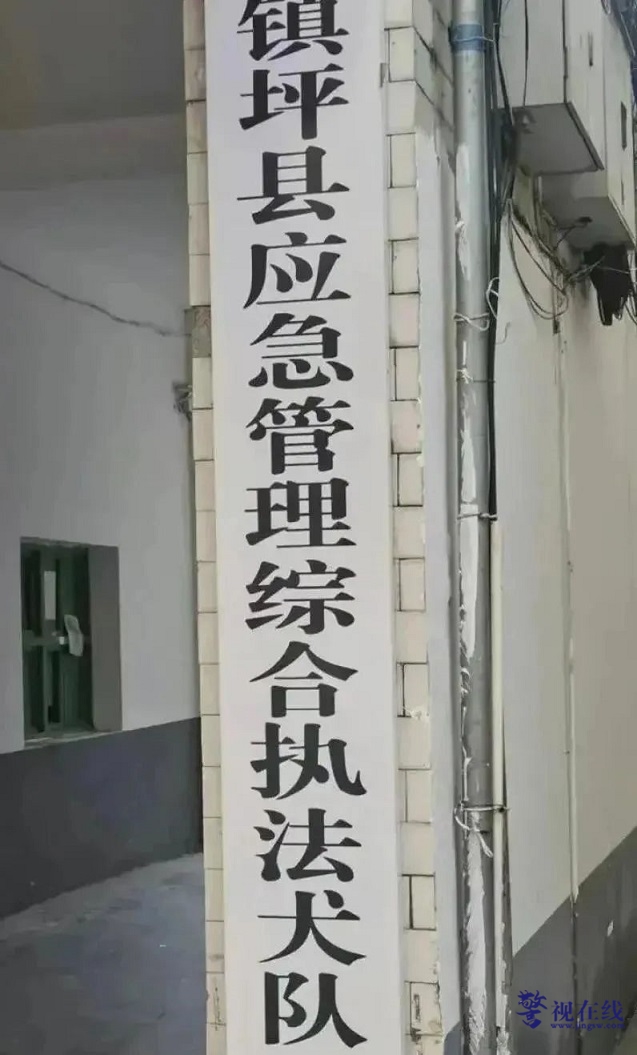 镇坪县应急管理综合执法犬队
警视在线
www.jingsw.com